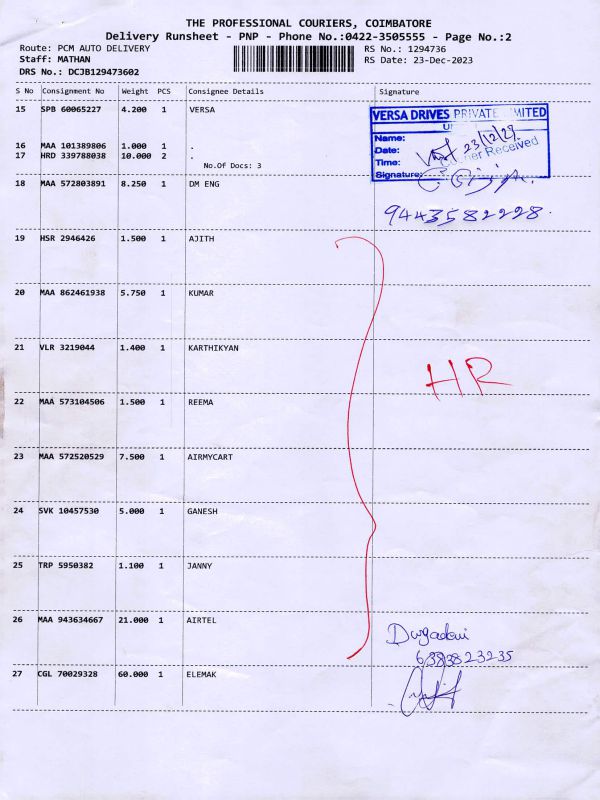 THE PROFESSIONAL COURIERS, COIMBATORE
Delivery Runsheet - PNP - Phone No.:0422-3505555 - Page No.:2
Route: PCM AUTO DELIVERY RS No.: 1294736
Staff: MATHAN RS Date: 23-Dec-2023
DRS No.: DCJB129473602
S No Consignment No Weight PCS Consignee Details Signature
15 SPB 60065227 4.200 1 VERSA
VERSA DRIVES PRIVATE LIMITED
Name:
Date: 23/12/
Time: Received
Signature:
16 MAA 101389806 1.000 1 .
17 HRD 339788038 10.000 2 .
No.Of Docs: 3
18 MAA 572803891 8.250 1 DM ENG
9443582228.
19 HSR 2946426 1.500 1 AJITH
20 MAA 862461938 5.750 1 KUMAR
21 VLR 3219044 1.400 1 KARTHIKYAN
HR
22 MAA 573104506 1.500 1 REEMA
23 MAA 572520529 7.500 1 AIRMYCART
24 SVK 10457530 5.000 1 GANESH
25 TRP 5950382 1.100 1 JANNY
26 MAA 943634667 21.000 1 AIRTEL
Durgadevi
6383823235
27 CGL 70029328 60.000 1 ELEMAK